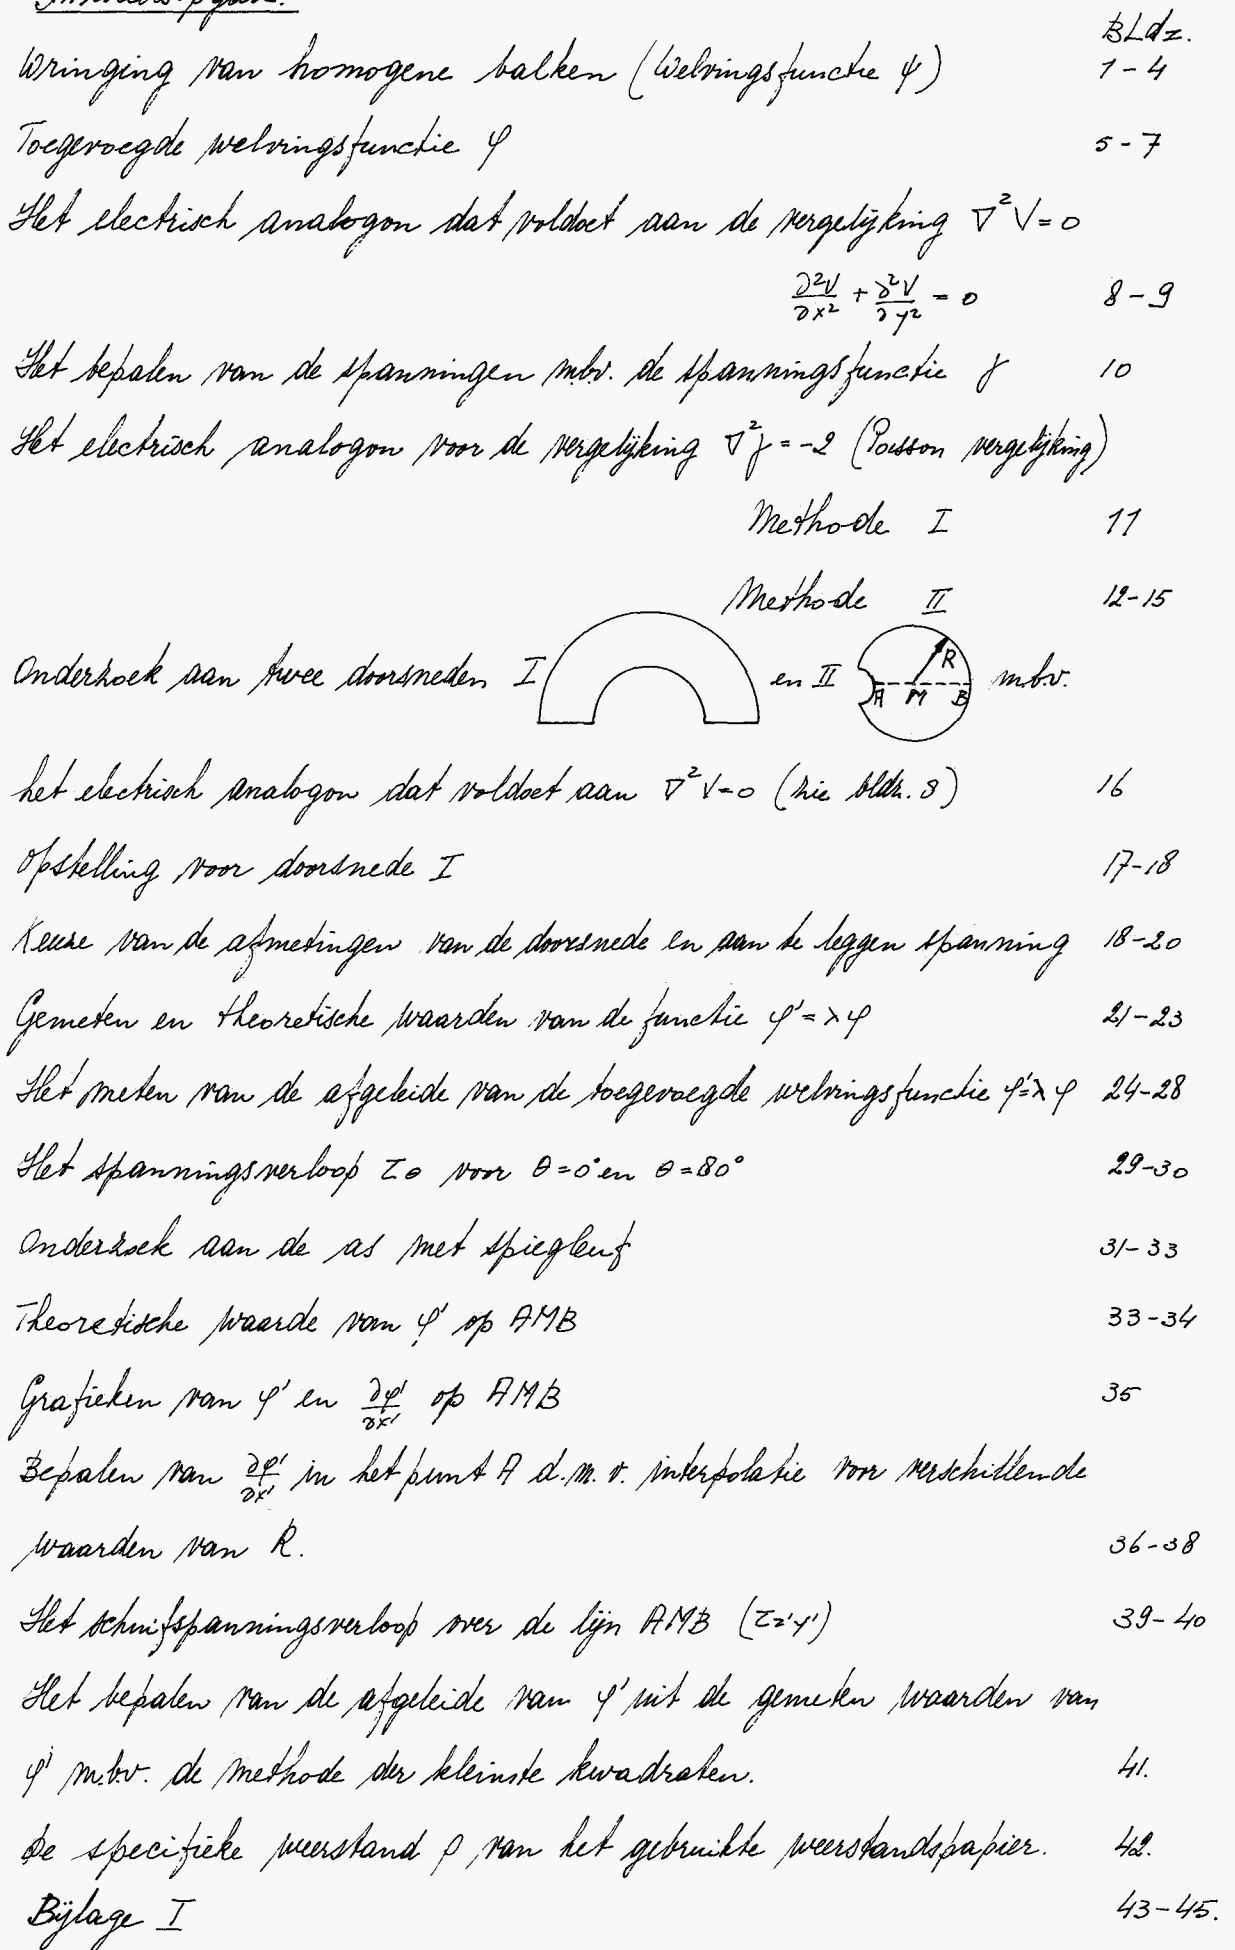 Inhoudsopgave.
BLdz.
Wringing van homogene balken (Welvingsfunctie ψ) 1-4
Toegevoegde welvingsfunctie φ 5-7
Het electrisch analogon dat voldoet aan de vergelijking ∇²V=0
∂²V/∂x² + ∂²V/∂y² = 0 8-9
Het bepalen van de spanningen m.b.v. de spanningsfunctie ƒ 10
Het electrisch analogon voor de vergelijking ∇²ƒ=-2 (Poisson vergelijking)
Methode I 11
Methode II 12-15
Onderzoek aan twee doorsneden I en II A M B R m.b.v.
het electrisch analogon dat voldoet aan ∇²V=0 (zie bldz. 8) 16
Opstelling voor doorsnede I 17-18
Keuze van de afmetingen van de doorsnede en aan te leggen spanning 18-20
Gemeten en theoretische waarden van de functie φ'=λφ 21-23
Het meten van de afgeleide van de toegevoegde welvingsfunctie φ'=λφ 24-28
Het spanningsverloop τθ voor θ=0° en θ=80° 29-30
Onderzoek aan de as met spiegleuf 31-33
Theoretische waarde van φ' op AMB 33-34
Grafieken van φ' en ∂φ'/∂x' op AMB 35
Bepalen van ∂φ'/∂x' in het punt A d.m.v. interpolatie voor verschillende
waarden van R. 36-38
Het schuifspanningsverloop over de lijn AMB (τz'y') 39-40
Het bepalen van de afgeleide van φ' uit de gemeten waarden van
φ' m.b.v. de methode der kleinste kwadraten. 41.
De specifieke weerstand ρ van het gebruikte weerstandspapier. 42.
Bijlage I 43-45.